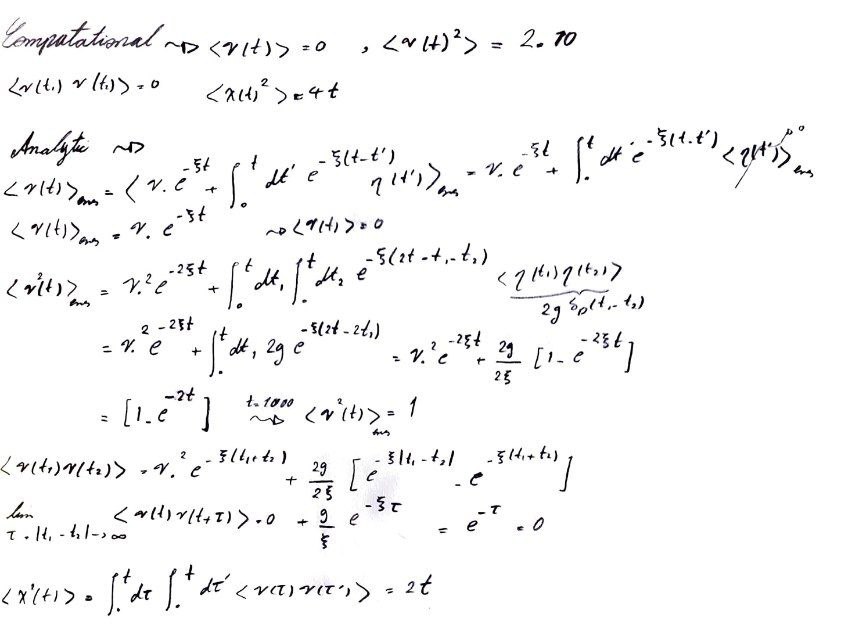 Computational ~> <v(t)> = 0 , <v(t)²> = 2.10
<v(t₁) v(t₂)> = 0 <x(t)²> = 4t
Analytic ~>
<v(t)>ₑₙₛ = <v₀ e^{-ξt} + ∫₀^t dt' e^{-ξ(t-t')} η(t')>ₑₙₛ = v₀ e^{-ξt} + ∫₀^t dt' e^{-ξ(t-t')} <η(t')>ₑₙₛ → 0
<v(t)>ₑₙₛ = v₀ e^{-ξt} ~> <v(t)> = 0
<v²(t)>ₑₙₛ = v₀² e^{-2ξt} + ∫₀^t dt₁ ∫₀^t dt₂ e^{-ξ(2t-t₁-t₂)} <η(t₁)η(t₂)>
2g δ_D(t₁-t₂)
= v₀² e^{-2ξt} + ∫₀^t dt₁ 2g e^{-ξ(2t-2t₁)} = v₀² e^{-2ξt} + 2g/2ξ [1 - e^{-2ξt}]
= [1 - e^{-2t}] t=1000 ~> <v²(t)>ₑₙₛ = 1
<v(t₁)v(t₂)> = v₀² e^{-ξ(t₁+t₂)} + 2g/2ξ [e^{-ξ|t₁-t₂|} - e^{-ξ(t₁+t₂)}]
lim τ=|t₁-t₂|→∞ <v(t)v(t+τ)> = 0 + g/ξ e^{-ξτ} = e^{-τ} = 0
<x²(t)> = ∫₀^t dτ ∫₀^t dτ' <v(τ)v(τ')> = 2t